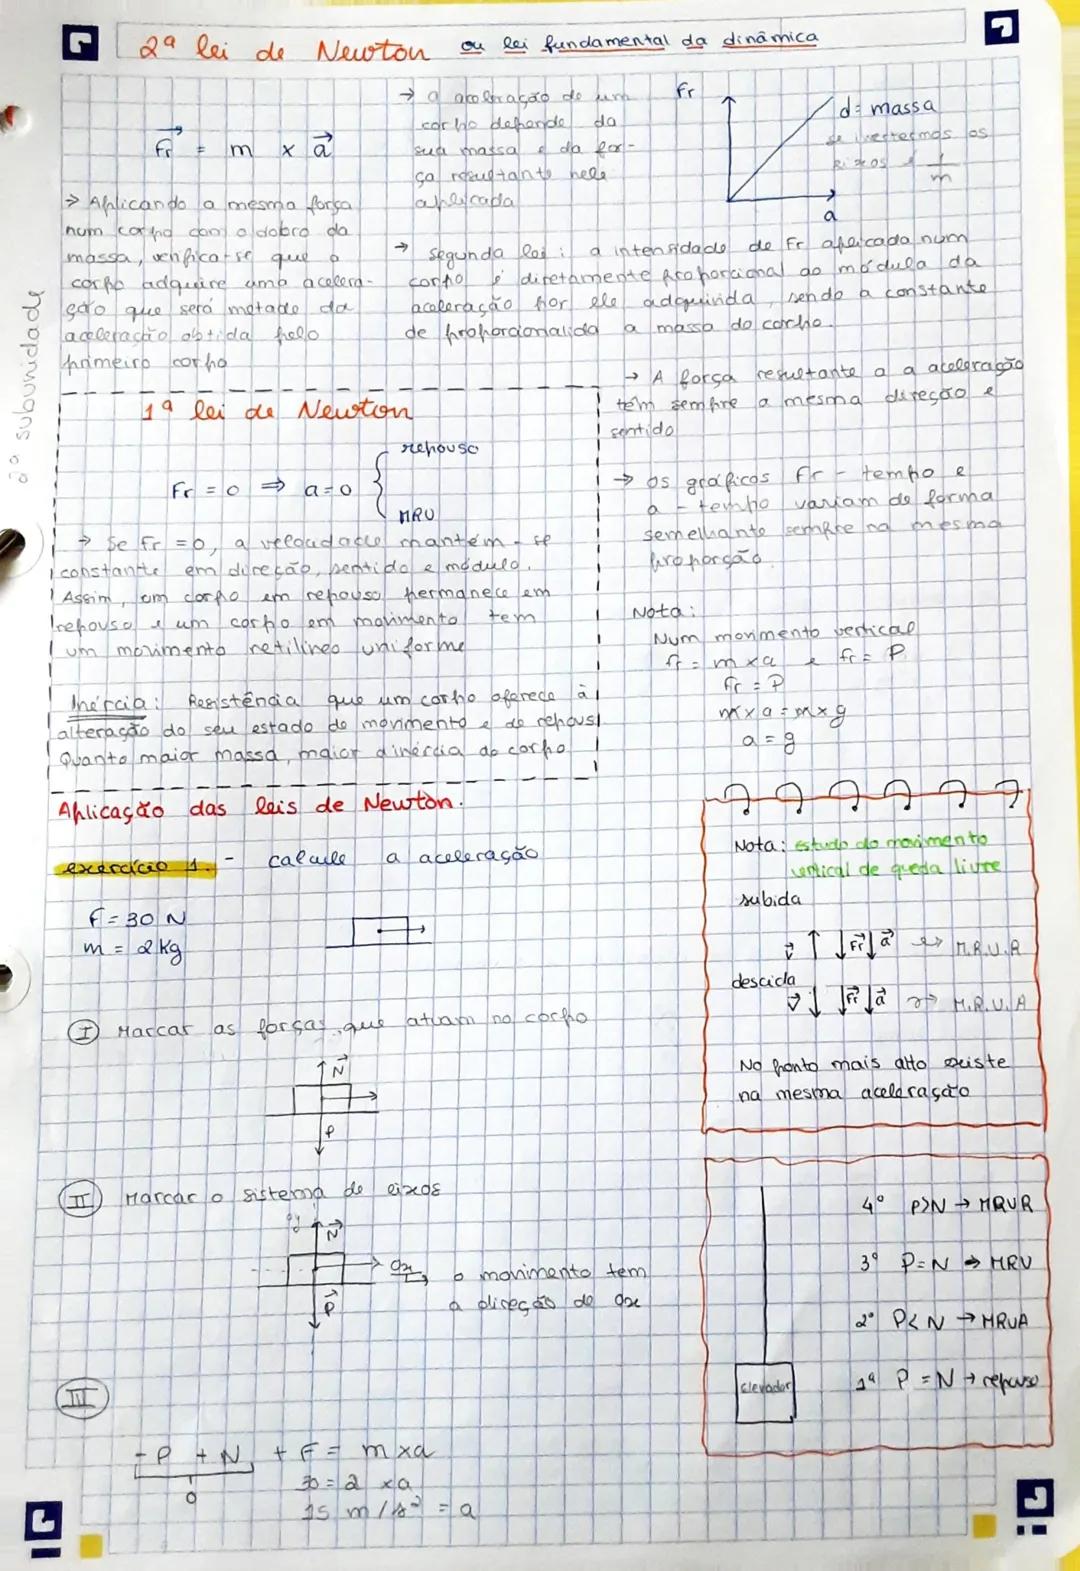 2ª lei de Newton ou lei fundamental da dinâmica
Fr = m x a
→ Aplicando a mesma força
num corpo com o dobro da
massa, verifica-se que o
corpo adquire uma acelera-
ção que será metade da
aceleração obtida pelo
primeiro corpo
→ a aceleração de um
corpo depende da
sua massa e da for-
ça resultante nele
aplicada
Fr
d= massa
se invertermos os
eixos é 1/m
a
→ Segunda lei: a intensidade de Fr aplicada num
corpo é diretamente proporcional ao módulo da
aceleração por ele adquirida, sendo a constante
de proporcionalida a massa do corpo.
→ A força resultante a a aceleração
têm sempre a mesma direção e
sentido
→ Os gráficos Fr - tempo e
a - tempo variam de forma
semelhante sempre na mesma
proporção
Nota:
Num movimento vertical
fr = m x a e fr = P
fr = P
m x a = m x g
a = g
subunidade
1ª lei de Newton
Fr = 0 ⇒ a = 0
repouso
MRU
→ Se Fr = 0, a velocidade mantém-se
constante em direção, sentido e módulo.
Assim, um corpo em repouso permanece em
repouso e um corpo em movimento tem
um movimento retilíneo uniforme
Inércia: Resistência que um corpo oferece à
alteração do seu estado de movimento e de repous
Quanto maior massa, maior d'inércia do corpo
Aplicação das leis de Newton.
exercício 1. - calcule a aceleração
F = 30 N
m = 2 kg
I Marcar as forças que atuam no corpo
N
P
II Marcar o sistema de eixos
oy N
ox
P
o movimento tem
a direção do ox
III
- P + N + F = m x a
0
30 = 2 x a
15 m/s² = a
Nota: estudo do movimento
vertical de queda livre
subida
v ↑ ↓Fr ↓a → M.R.U.R
descida
v ↓ ↓Fr ↓a → M.R.U.A
No ponto mais alto existe
na mesma aceleração
4º P>N → MRUR
3º P=N → MRU
2º P<N → MRUA
1ª P=N → repouso
Elevador